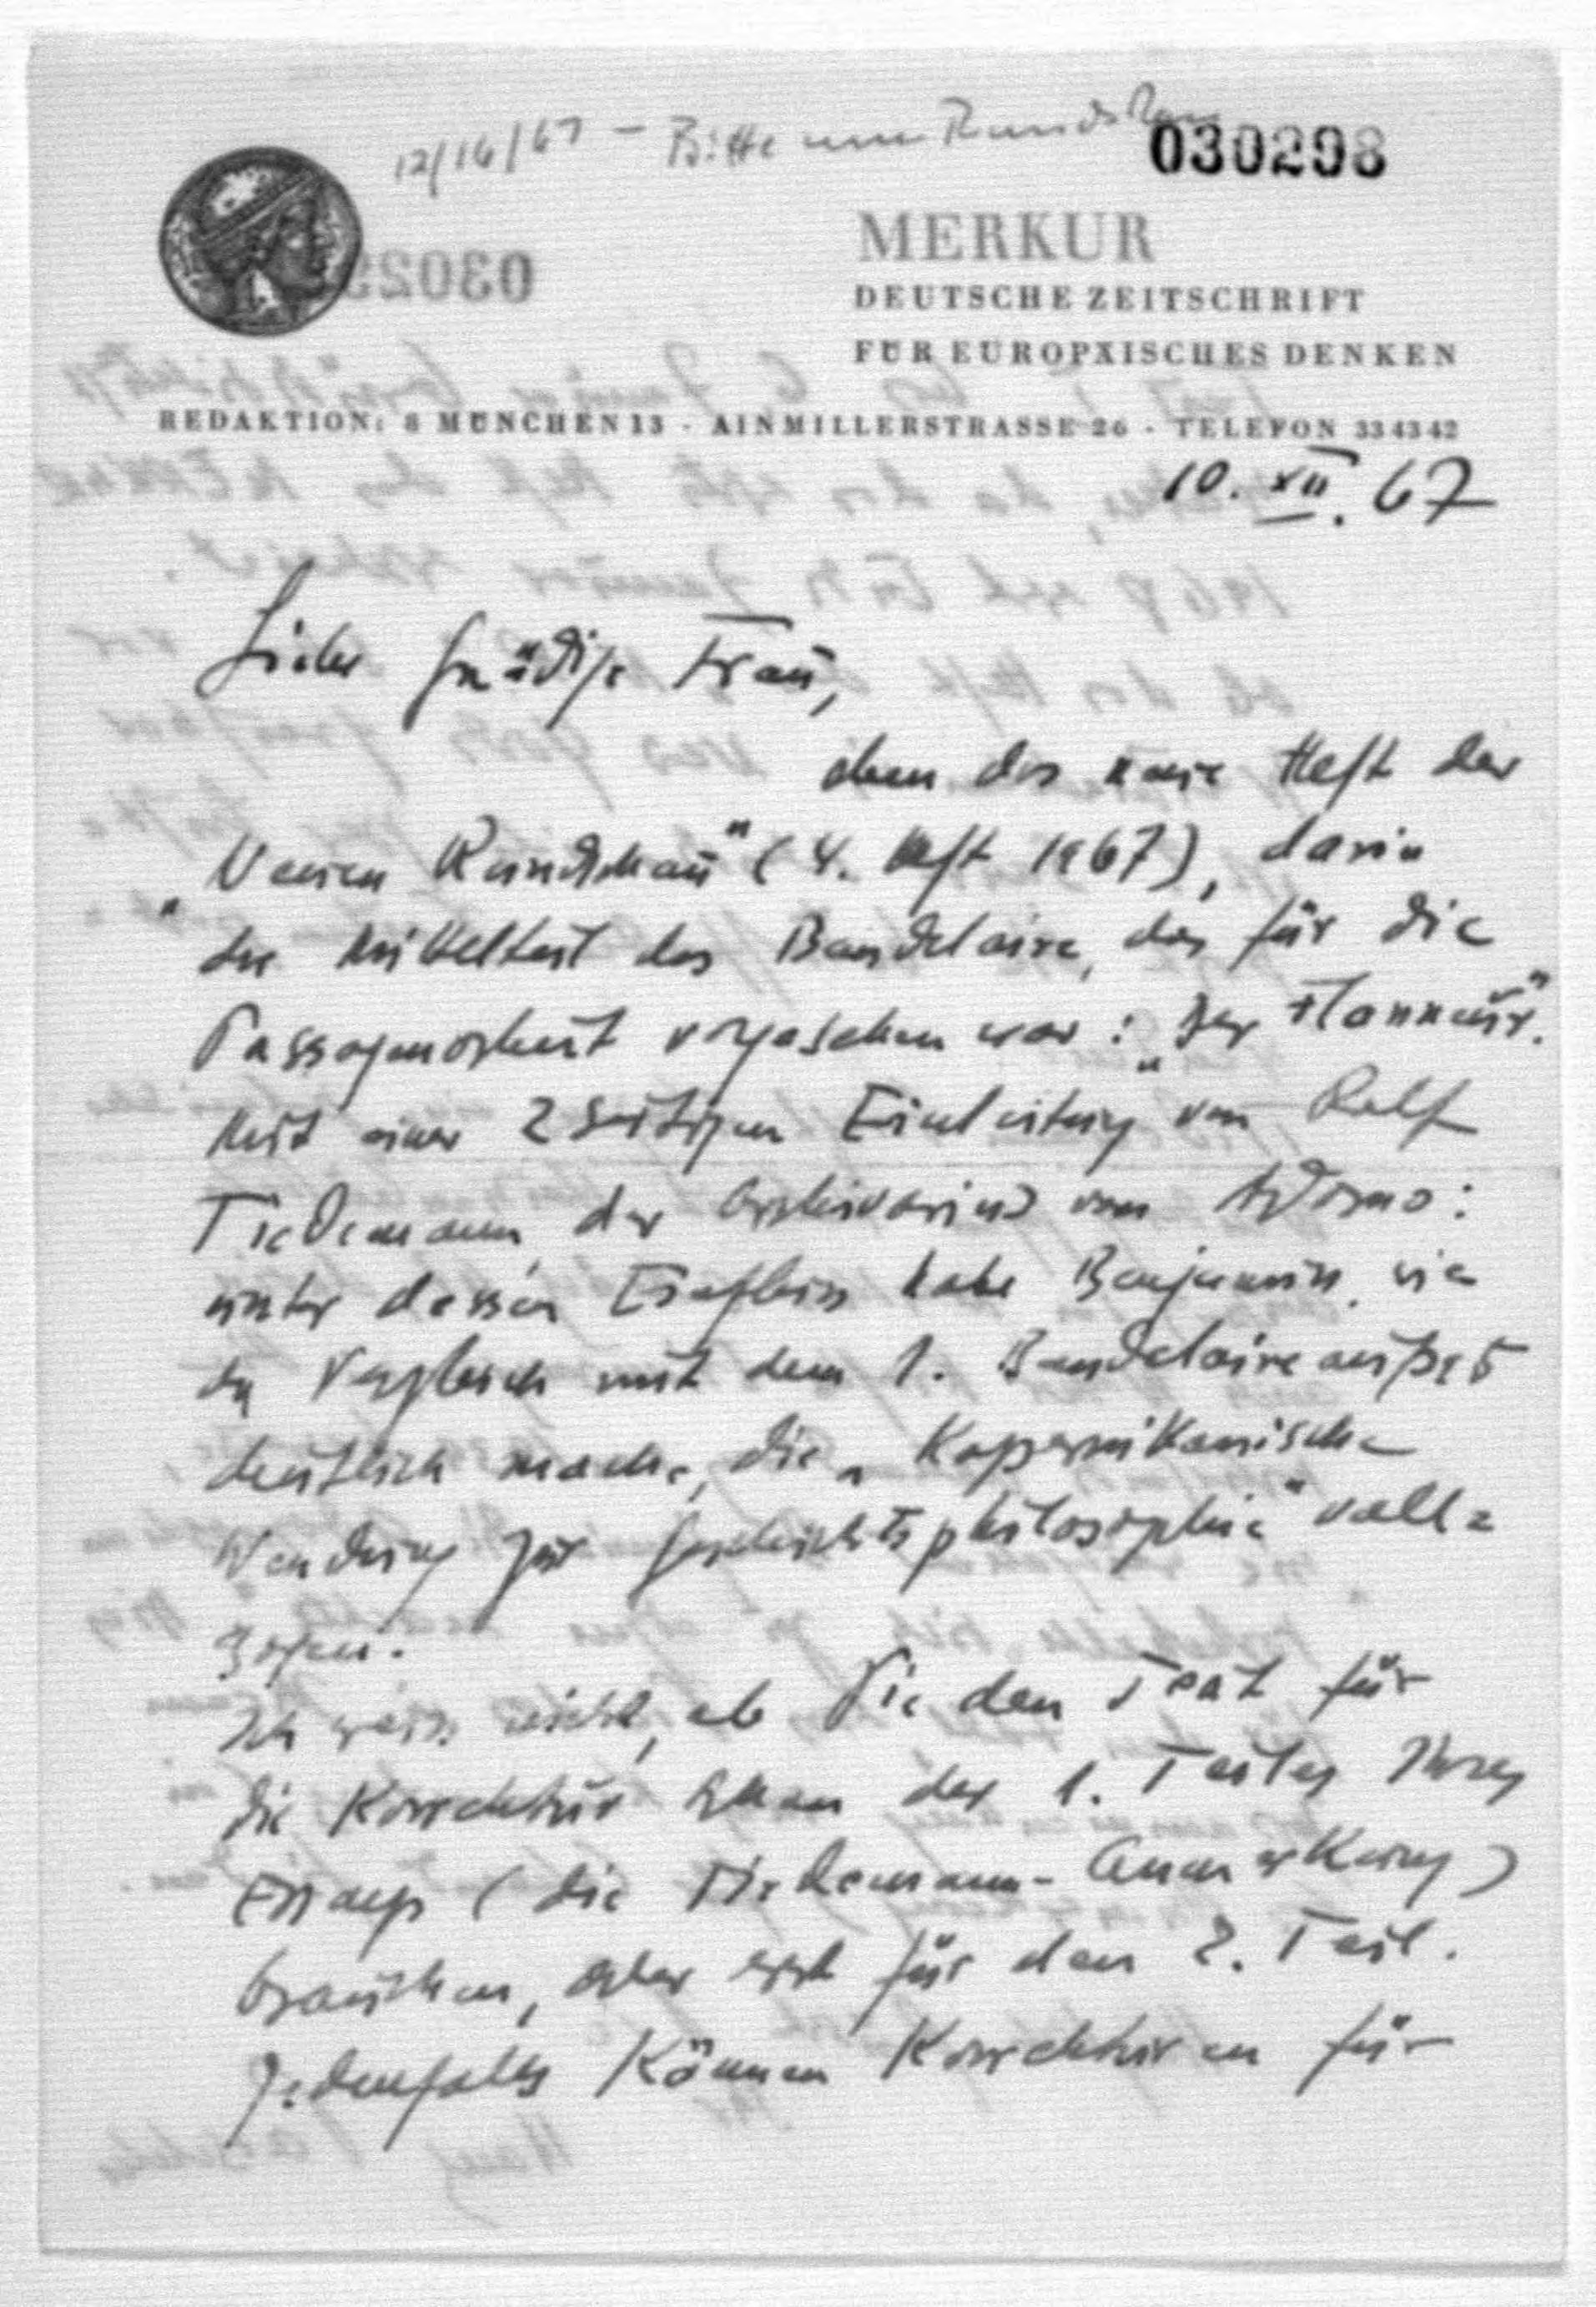 12/16/67 - Bitte um Rundschau
030298
MERKUR
DEUTSCHE ZEITSCHRIFT
FÜR EUROPÄISCHES DENKEN
REDAKTION: 8 MÜNCHEN 13 - AINMILLERSTRASSE 26 - TELEFON 33 43 42
10. XII. 67
Liebe gnädige Frau,
eben das neue Heft der
„Neuen Rundschau" (4. Heft 1967), darin
der Mittelteil des Baudelaire, der für die
Passagenarbeit vorgesehen war: „Der Flaneur".
Mit einer 2 seitigen Einleitung von Rolf
Tiedemann, der Archivarius von Adorno:
unter dessen Einfluss habe Benjamin, wie
der Vergleich mit dem 1. Baudelaire
deutlich mache, die „Kopernikanische
Wendung zur Geschichtsphilosophie" voll=
zogen.
Ich weiss nicht, ob Sie den Text für
die Korrektur schon des 1. Teiles Ihres
Essays (die Tiedemann-Anmerkung)
brauchen, oder erst für den 2. Teil.
Jedenfalls können Korrekturen für